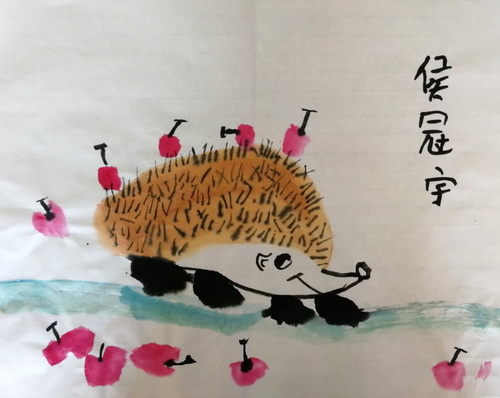 侯冠宇